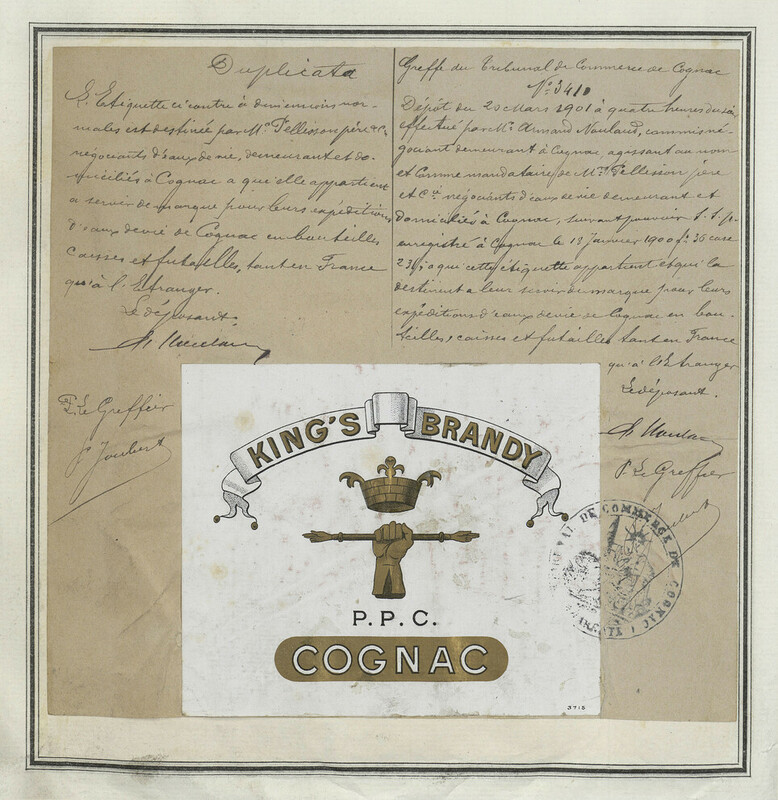 Duplicata
L'Etiquette ci contre à dimensions nor-
males est destinée par Mrs Pellisson père & Cie
négociants d'eaux de vie, demeurant et do-
miciliés à Cognac a qui elle appartient
a servir de marque pour leurs expéditions
d'eaux de vie de Cognac en bouteilles
caisses et futailles, tant en France
qu'à l'Etranger.
Le déposant.
P. Le Greffier
Joubert
Greffe du Tribunal de Commerce de Cognac
No 3410
Dépôt du 20 Mars 1901 à quatre heures du soir
effectué par Mr Armand Naulaud, commis né-
gociant demeurant à Cognac, agissant au nom
et comme mandataire de Mrs Pellisson père
et Cie négociants d'eaux de vie demeurant et
domiciliés à Cognac, suivant pouvoir s. s. p.
enregistré à Cognac le 13 Janvier 1900 fo 36 case
23, à qui cette étiquette appartient et qui la
destinent a leur servir de marque pour leurs
expéditions d'eaux de vie de Cognac en bou-
teilles, caisses et futailles tant en France
qu'à l'Etranger
Le déposant.
P. Le Greffier
Joubert
KING'S BRANDY
P.P.C.
COGNAC
3715
TRIBUNAL DE COMMERCE DE COGNAC